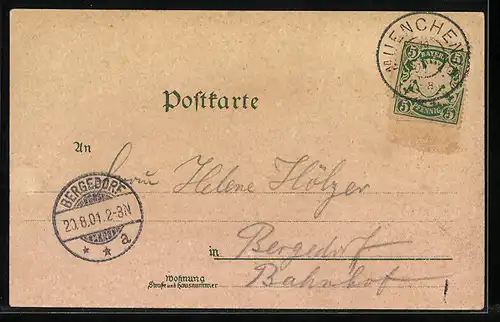 MUENCHEN
5 BAYERN 5
5 PFENNIG 5
Postkarte
An
Frau Helene Hölzer
BERGEDORF
20.8.01. 2-3N
* * a
in Bergedorf
Bahnhof
Wohnung
Straße und Hausnummer